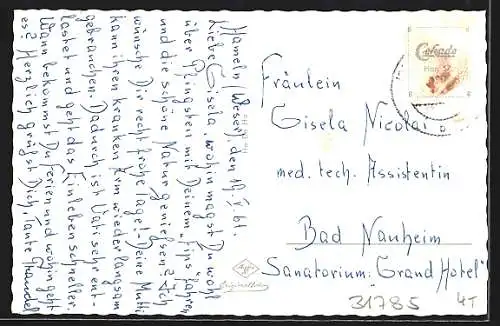 Hameln/Weser, den 19. V. 61.
Liebe Gisela, wohin magst Du wohl
über Pfingsten mit Deinem "Tips" fahren
und die schöne Natur genießen? Ich
wünsche Dir recht frohe Tage! Deine Mutti
kann ihren kranken Arm wieder langsam
gebrauchen. Dadurch ist Vati sehr ent-
lastet und geht das Einleben schneller.
Wann bekommst Du Ferien und wohin geht
es? Herzlich grüßt Dich, Tante Traudel
Fräulein
Gisela Nicolai
med. tech. Assistentin
Bad Nauheim
Sanatorium "Grand Hotel"
Agfa
31785
4T